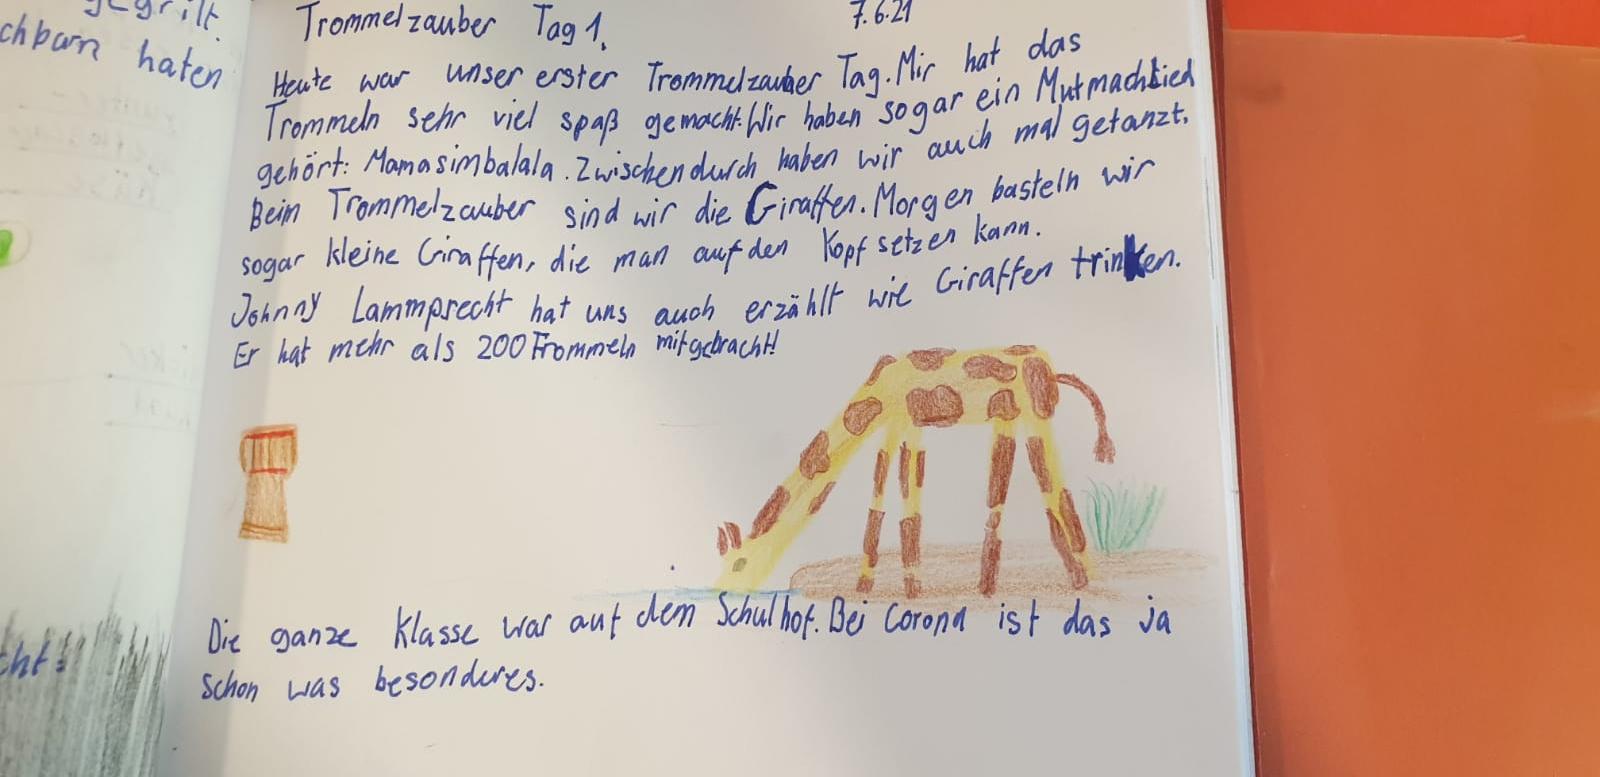 gegrilt.
chbarn haten
cht:
Trommelzauber Tag 1. 7.6.21
Heute war unser erster Trommelzauber Tag. Mir hat das
Trommeln sehr viel spaß gemacht. Wir haben sogar ein Mutmachlied
gehört: Mamasimbalala. Zwischendurch haben wir auch mal getanzt.
Beim Trommelzauber sind wir die Giraffen. Morgen basteln wir
sogar kleine Giraffen, die man auf den Kopf setzen kann.
Johnny Lammprecht hat uns auch erzählt wie Giraffen trinken.
Er hat mehr als 200 Trommeln mitgebracht!
Die ganze Klasse war auf dem Schulhof. Bei Corona ist das ja
schon was besonderes.